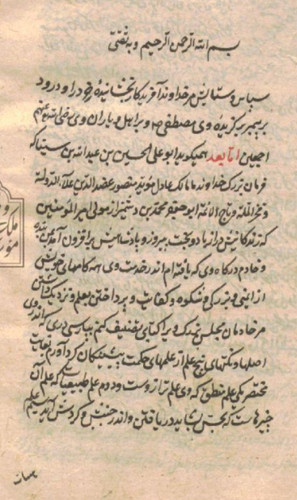 بسم الله الرحمن الرحیم و به ثقتی
سپاس و ستایش مر خداوند آفریدکار بخشاینده خرد را و درود
بر پیمبر برکزیده وی مصطفی ص و بر اهل و یاران وی رضی الله عنهم
اجمعین اما بعد همیکوید ابو علی الحسین بن عبدالله بن سینا که
فرمان بزرک خداوند ما ملک عادل مؤید منصور عضد الدین علاء الدولة
و فخر الملة و تاج الائمه ابو جعفر محمد بن دشمنزار مولی امیر المومنین
که زندکانیش دراز باد و بخت پیروز و پادشاهیش برافزون آمد بمن بنده
و خادم درکاه وی که یافته ام اندر خدمت وی همه کامهای خویشتن
از ایمنی و بزرکی و شکوه و کفایت و پرداختن بعلم و نزدیک داشتن
مر خادمان مجلس بزرک ویرا کتابی تصنیف کنم بپارسی دری که اندر وی
اصلها و نکتهای پنج علم از علمهای حکمت پیشینکان کرد آورم بغایت
مختصر یکی علم منطق که وی علم ترازوست و دوم علم طبیعیات که علم آن
چیزهاست که بحس بشاید دریافتن و اندر جنبش و کردش اند سیم علم